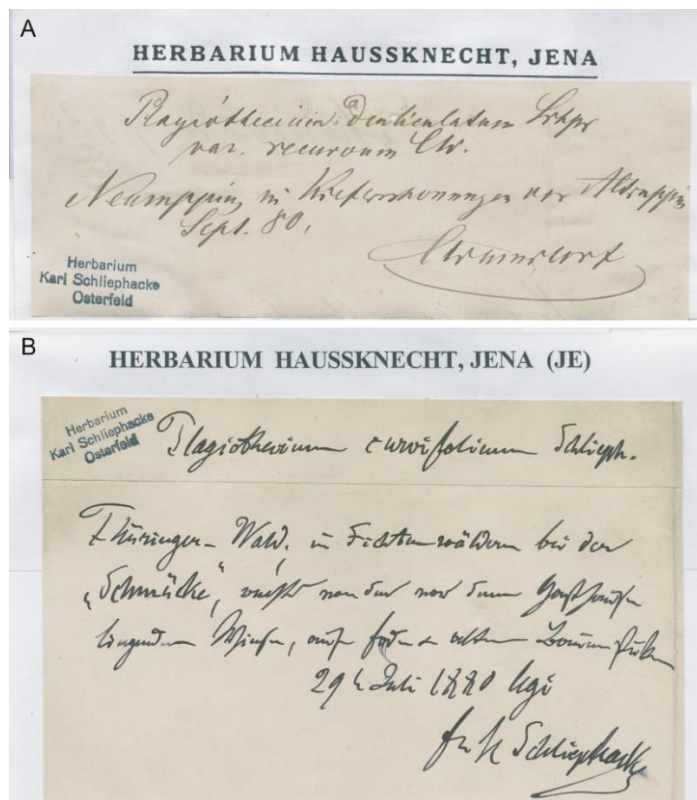 A
HERBARIUM HAUSSKNECHT, JENA
Plagiothecium denticulatum
var. recurvum
Neuruppin, in Kiefernschonungen vor Altruppin
Sept. 80.
Herbarium
Karl Schliephacke
Osterfeld
B
HERBARIUM HAUSSKNECHT, JENA (JE)
Herbarium
Karl Schliephacke
Osterfeld
Plagiothecium curvifolium Schlieph.
Thüringer-Wald, in Fichtenwäldern bei der
„Schmücke",
Wiesen, alten
29 Juli 1880
Schliephacke